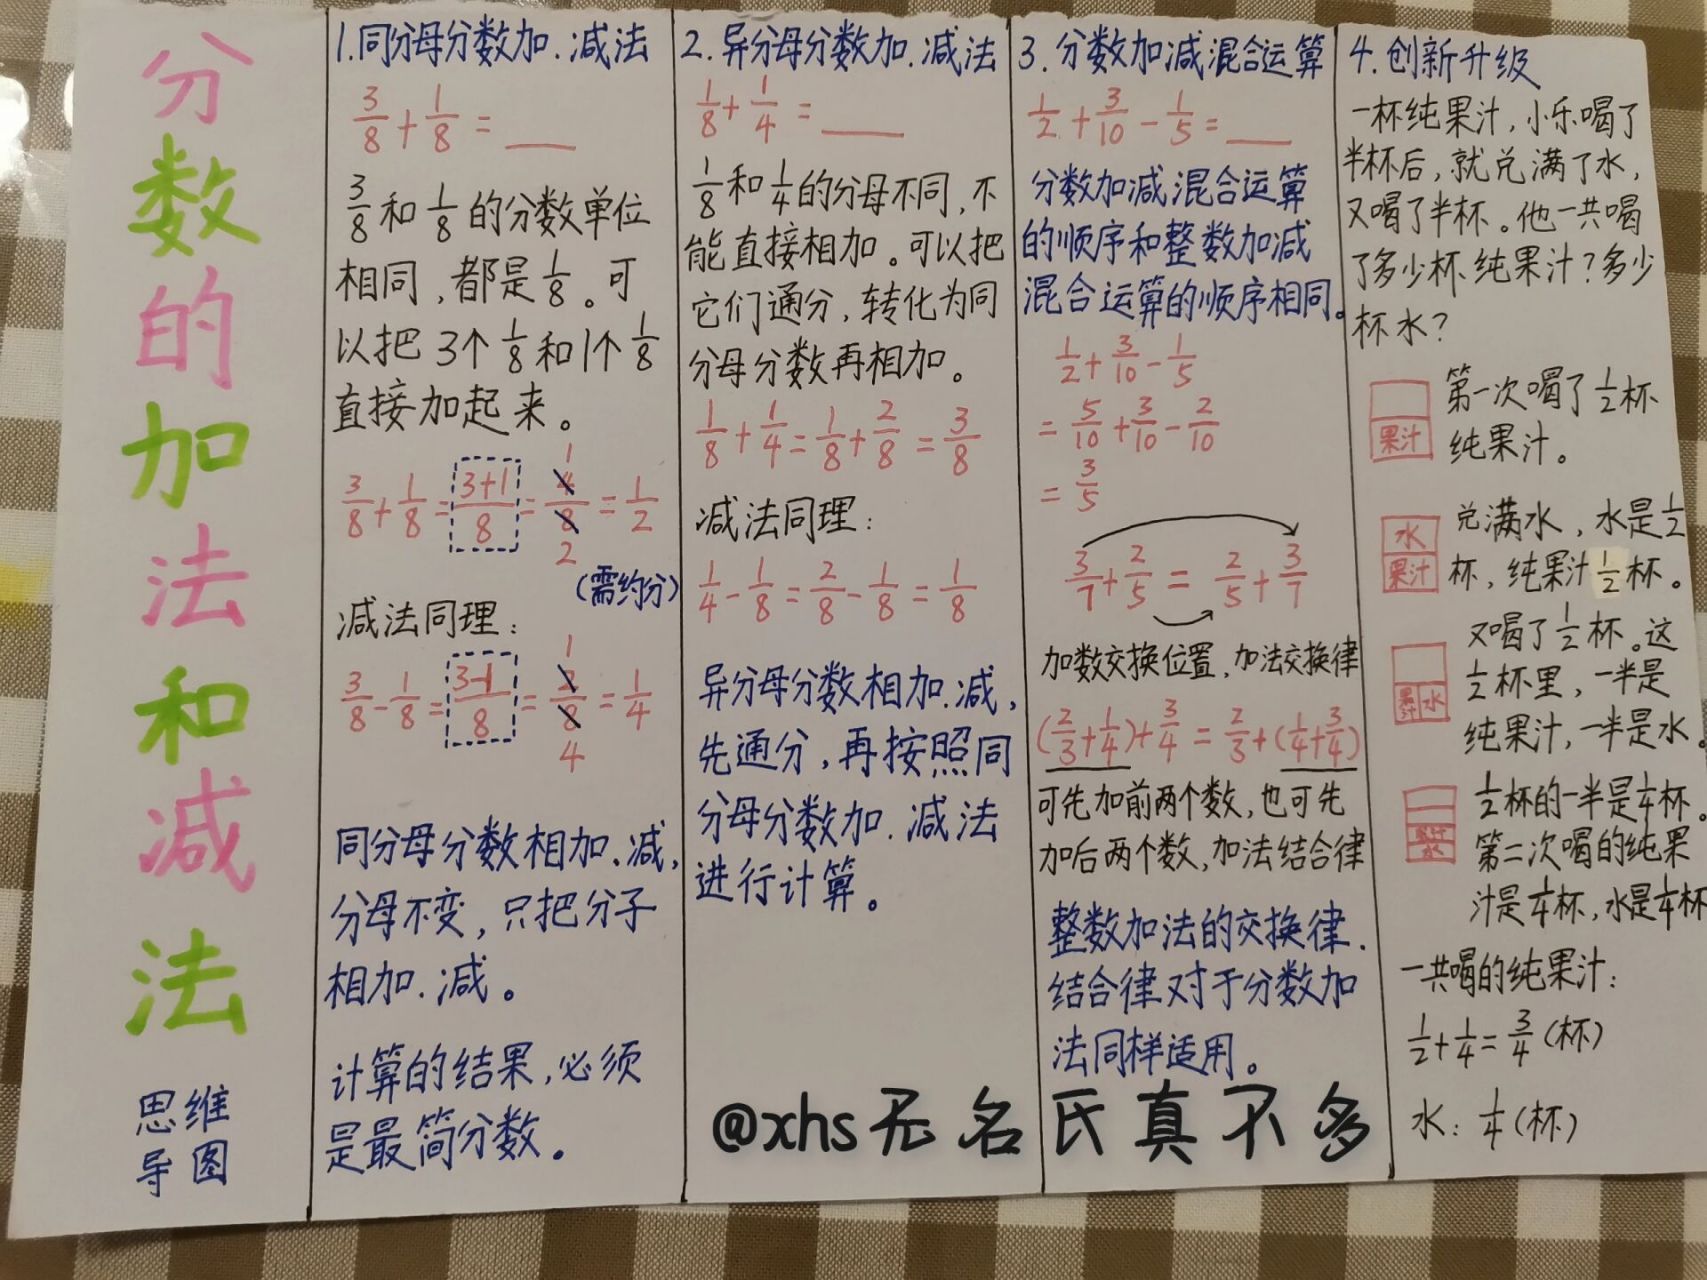 分数的加法和减法
思维
导图
1.同分母分数加.减法
3/8+1/8=___
3/8和1/8的分数单位
相同,都是1/8。可
以把3个1/8和1个1/8
直接加起来。
3/8+1/8=(3+1)/8=4/8=1/2
1
2
(需约分)
减法同理:
3/8-1/8=(3-1)/8=2/8=1/4
1
4
同分母分数相加.减,
分母不变,只把分子
相加.减。
计算的结果,必须
是最简分数。
2.异分母分数加.减法
1/8+1/4=___
1/8和1/4的分母不同,不
能直接相加。可以把
它们通分,转化为同
分母分数再相加。
1/8+1/4=1/8+2/8=3/8
减法同理:
1/4-1/8=2/8-1/8=1/8
异分母分数相加.减,
先通分,再按照同
分母分数加.减法
进行计算。
3.分数加减混合运算
1/2+3/10-1/5=___
分数加减混合运算
的顺序和整数加减
混合运算的顺序相同。
1/2+3/10-1/5
=5/10+3/10-2/10
=3/5
3/7+2/5=2/5+3/7
加数交换位置,加法交换律
(2/3+1/4)+3/4=2/3+(1/4+3/4)
可先加前两个数,也可先
加后两个数,加法结合律
整数加法的交换律.
结合律对于分数加
法同样适用。
4.创新升级
一杯纯果汁,小乐喝了
半杯后,就兑满了水,
又喝了半杯。他一共喝
了多少杯纯果汁?多少
杯水?
果汁
第一次喝了1/2杯
纯果汁。
水
果汁
兑满水,水是1/2
杯,纯果汁1/2杯。
果汁 水
又喝了1/2杯。这
1/2杯里,一半是
纯果汁,一半是水。
果汁
水
1/2杯的一半是1/4杯。
第二次喝的纯果
汁是1/4杯,水是1/4杯
一共喝的纯果汁:
1/2+1/4=3/4(杯)
水:1/4(杯)
@xhs无名氏真不多